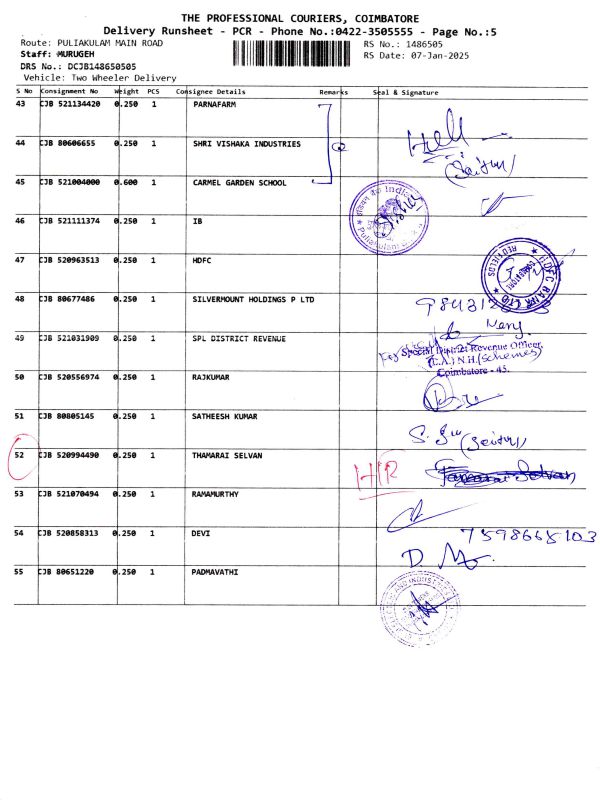 THE PROFESSIONAL COURIERS, COIMBATORE
Delivery Runsheet - PCR - Phone No.:0422-3505555 - Page No.:5
Route: PULIAKULAM MAIN ROAD RS No.: 1486505
Staff: MURUGEH RS Date: 07-Jan-2025
DRS No.: DCJB148650505
Vehicle: Two Wheeler Delivery
S No Consignment No Weight PCS Consignee Details Remarks Seal & Signature
43 CJB 521134420 0.250 1 PARNAFARM
44 CJB 80606655 0.250 1 SHRI VISHAKA INDUSTRIES
45 CJB 521004000 0.600 1 CARMEL GARDEN SCHOOL
46 CJB 521111374 0.250 1 IB
47 CJB 520963513 0.250 1 HDFC
HDFC BANK LTD
REDFIELDS
48 CJB 80677486 0.250 1 SILVERMOUNT HOLDINGS P LTD
49 CJB 521031909 0.250 1 SPL DISTRICT REVENUE
For Special District Revenue Officer,
(L.A.) N.H. (Schemes)
Coimbatore - 45.
50 CJB 520556974 0.250 1 RAJKUMAR
51 CJB 80805145 0.250 1 SATHEESH KUMAR
52 CJB 520994490 0.250 1 THAMARAI SELVAN
53 CJB 521070494 0.250 1 RAMAMURTHY
54 CJB 520858313 0.250 1 DEVI 7598668103
55 CJB 80651220 0.250 1 PADMAVATHI